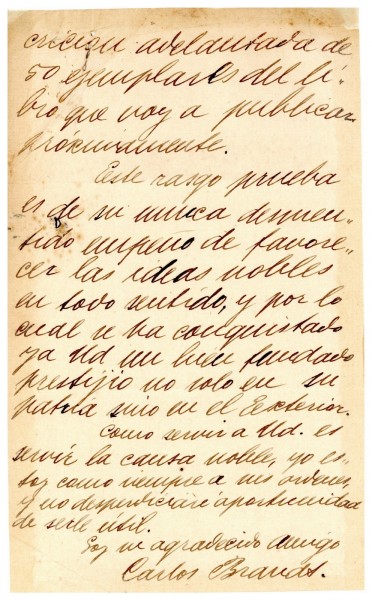 crición adelantada de
50 ejemplares del li-
bro que voy a publicar
próximamente.
Este rasgo prueba
es de su nunca desmen-
tido empeño de favore-
cer las ideas nobles
en todo sentido, y por lo
cual se ha conquistado
ya Ud un bien fundado
prestijio no solo en su
patria sino en el Exterior.
Como servir a Ud. es
servir la causa noble, yo es-
toy como siempre a sus órdenes,
y no desperdiciaré oportunidad
de serle útil.
Soy su agradecido amigo
Carlos Brandt.